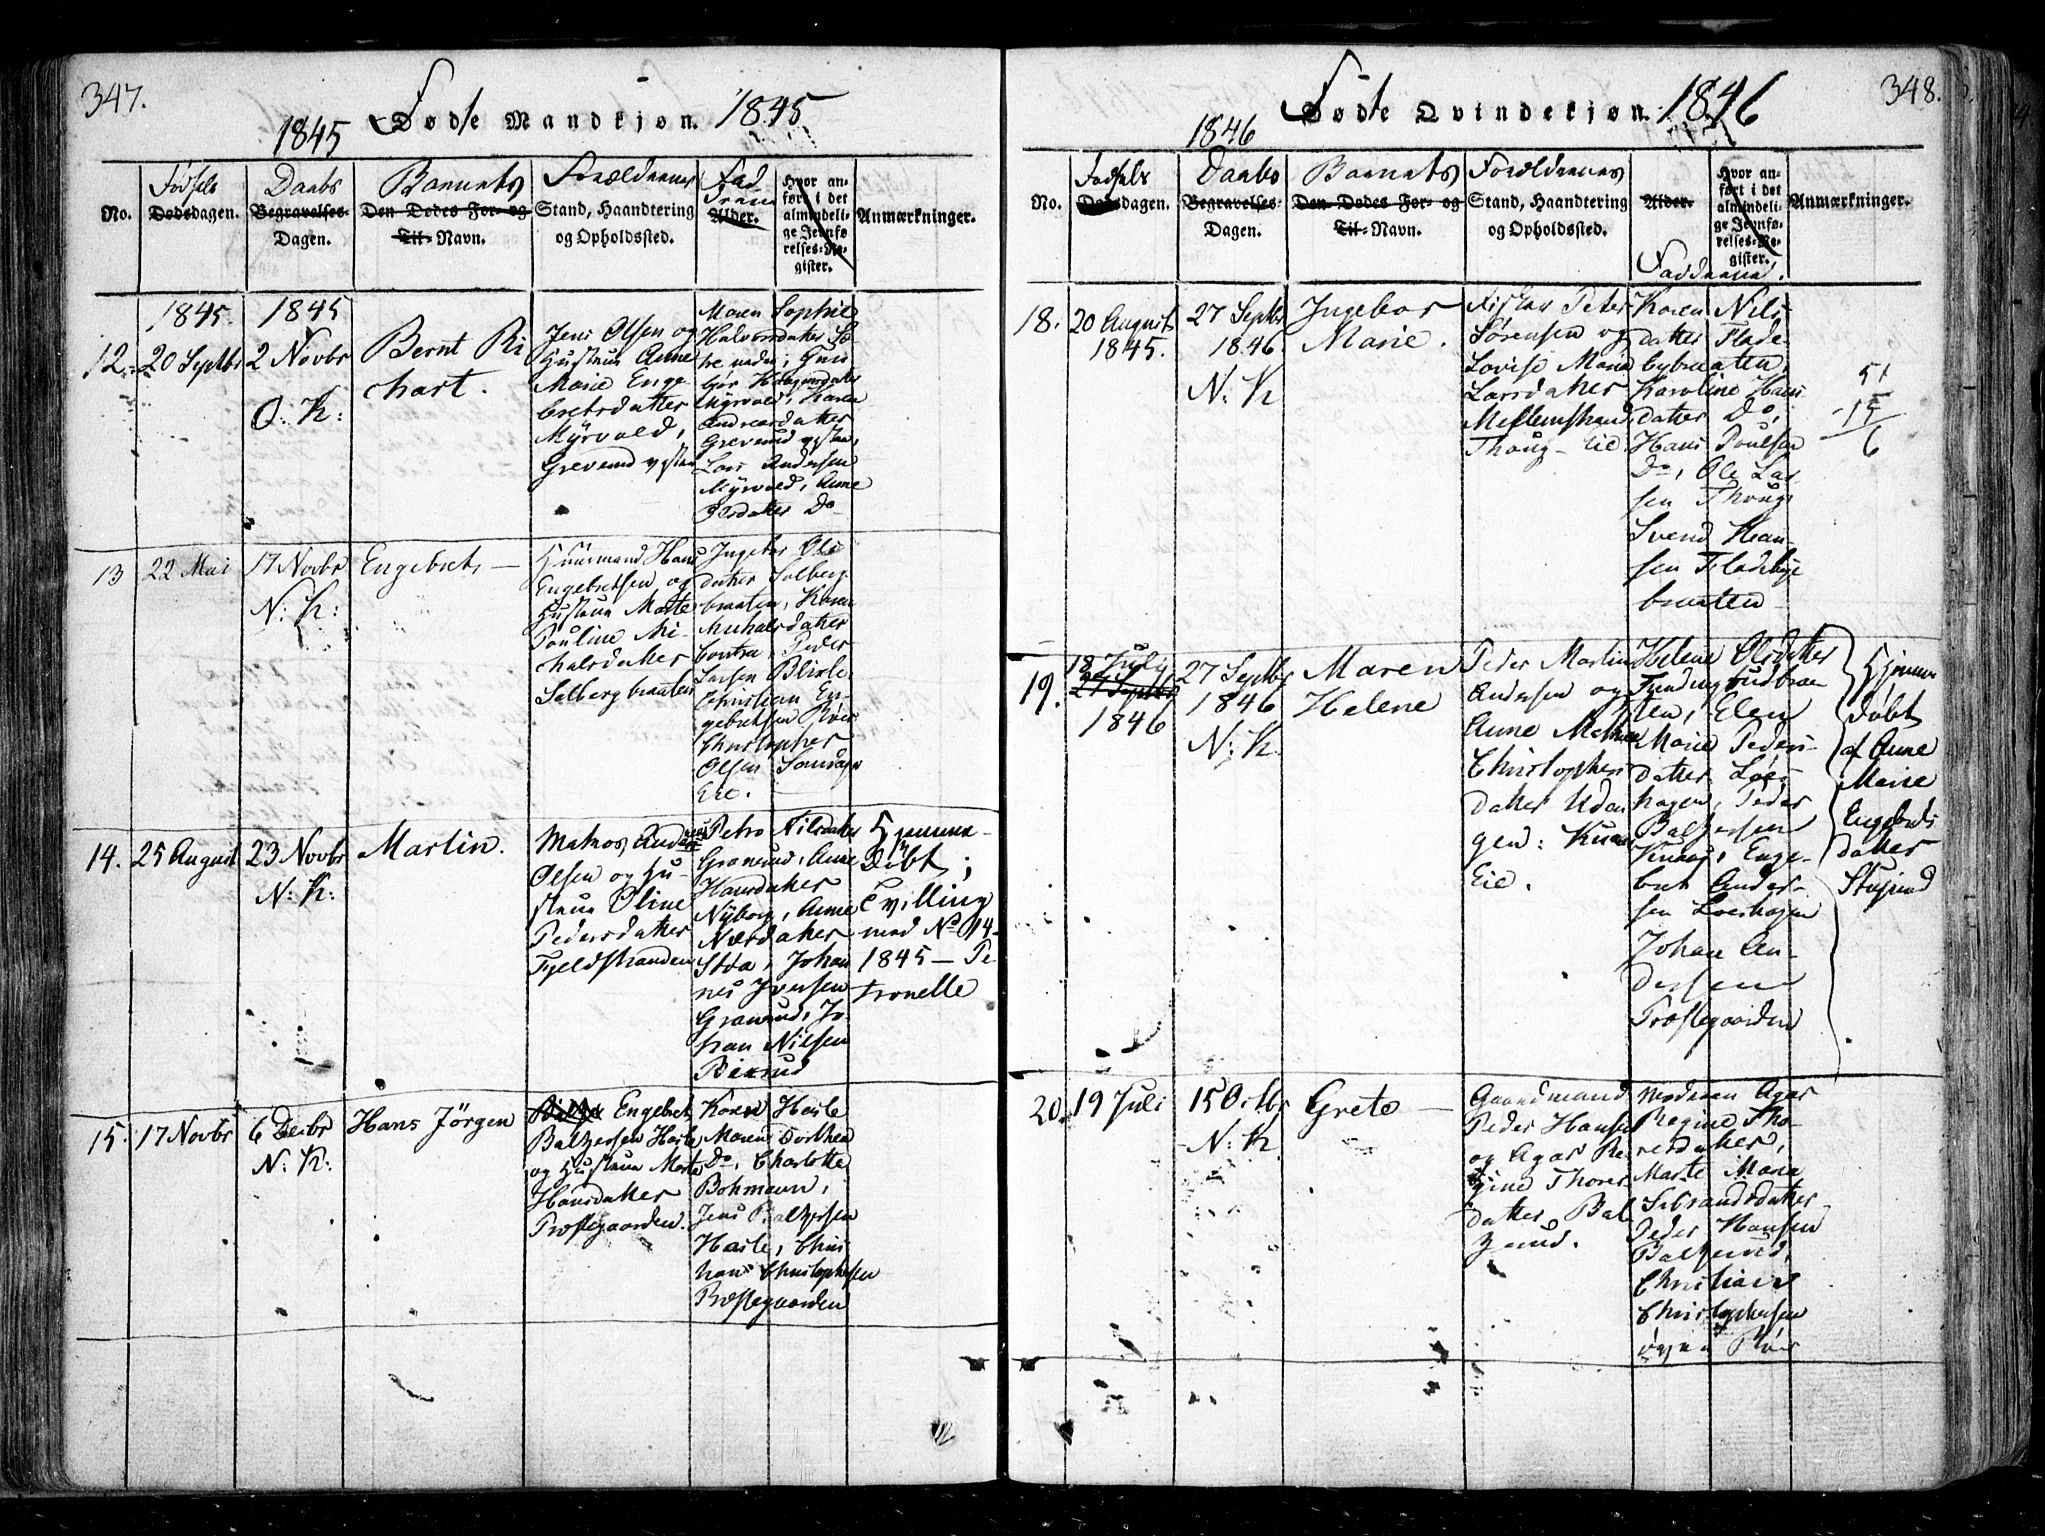 347.
Fødte Mandkjøn. 1845
1845
No.
Fødsels
Dødsdagen.
Daabs
Begravelses-
Dagen.
Barnets
Den Dødes For- og
Til-Navn.
Forældrenes
Stand, Haandtering
og Opholdssted.
Fad
drene
Alder.
Hvor an-
ført i det
almindeli-
ge Jevnfø-
relses-Re-
gister.
Anmærkninger.
12.
1845.
20 Septbr
1845
2 Novbr
O: K:
Bernt Ri
chart.
Jens Olsen og
Hustrue Anne
Marie Enge
bretsdatter
Myrvold,
Greverud
Maren Sophie
Halvorsdatter
Myrvold, Karen
Andreasdatter
Greverud
Lars Andersen
Myrvold, Anne
Do
13
22 Mai
17 Novbr
N: K:
Engebret
Huusmand Hans
Engebretsen og
Hustrue Marte
Pauline Mi-
chalsdatter
Solbergbraaten
Ingebor Ols
datter Solberg
braaten, Karen
Michalsdatter
Peder
Larsen
Christian En
gebretsen
Christopher
Olsen
Eie.
14.
25 August
23 Novbr
N: K:
Martin.
Matros Anders
Olsen og Hu-
strue Oline
Pedersdatter
Fjeldstranden
Petro Nilsdatter
Granerud, Anne
Hansdatter
Nyborg, Anne
datter
Støa, Johan
nes Iversen
Granerud, Jo
han Nilsen
Hjemme-
døbt;
Tvilling
med No 14
1845 - Pe
tronelle
15.
17 Novbr
6 Decbr
N: K:
Hans Jörgen
Engebret
Baltzersen Hasle
og Hustrue Marte
Hansdatter
Præstegaarden.
Karen Hasle
Maren Dorthea
Do, Charlotte
Bohmann,
Jens Baltzersen
Hasle, Chris
tian Christophersen
Præstegaarden
348.
Fødte Qvindekjøn. 1846
1846
No.
Fødsels
Dødsdagen.
Daabs
Begravelses-
Dagen.
Barnets
Den Dødes For- og
Til-Navn.
Forældrenes
Stand, Haandtering
og Opholdssted.
Alder.
Faddrene.
Hvor an-
ført i det
almindeli-
ge Jevnfø-
relses-Re-
gister.
Anmærkninger.
18.
20 August
1845.
27 Septbr
1846.
N: K
Ingebor
Marie.
Peter
Sørensen og
Lovise Marie
Larsdatter
Mellemstrand
Thoug- Eie
Karen Nils
datter Flade
bybraaten,
Karoline Hans
datter Do,
Hans Poulsen
Do, Ole Lar
sen Thoug
Svend Han-
sen Fladebye
braaten
51
15
6
19.
18 July
27 Septbr
1846
27 Septbr
1846
N: K.
Maren
Helene
Peder Martin
Andersen og
Anne Mathea
Christophers
datter
gen: Knar
Eie.
Helene Olsdatter
ten, Elen
Marie Peders-
datter Løes
hagen, Peder
Baltzersen
Knar, Enge-
bret Ander-
sen Loeshagen
Johan An-
dersen
Præstegaarden
Hjemme
døbt
af Anne
Marie
Engebrets
datter
20.
19 Juli
15 Octbr
N: K
Grete
Gaardmand
Peder Hansen
og Agar Re
gine Thores
datter Bal
zerud.
Moderen Agar
Regine Tho-
resdatter,
Marte Maria
Sebrandsdatter
Peder Hansen
Balzerud,
Christian
Christophersen